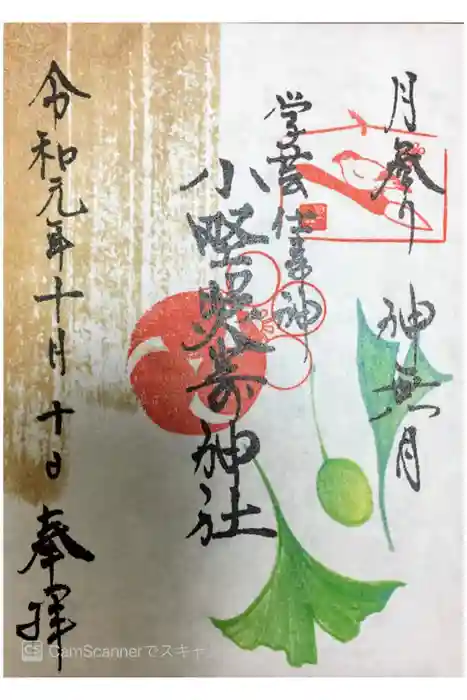 月参り 神無月
学芸仕事神
小野照崎神社
令和元年十月十日 奉拝
CS CamScannerでスキャ